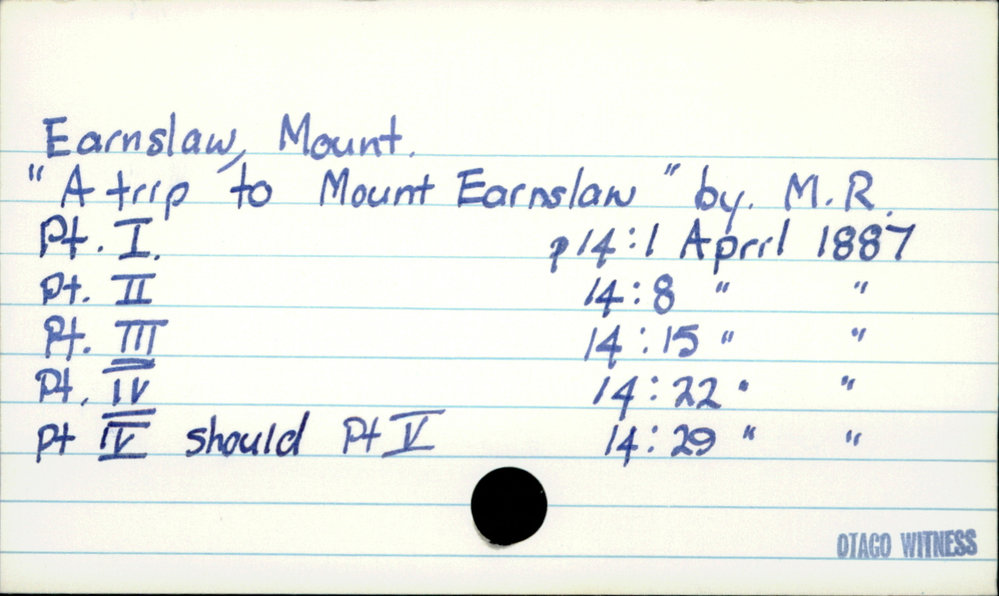 Earnslaw, Mount.
"A trip to Mount Earnslaw" by. M.R.
Pt. I. p14:1 April 1887
pt. II 14:8 " "
Pt. III 14:15 " "
Pt. IV 14:22 " "
pt IV should Pt V 14:29 " "
OTAGO WITNESS